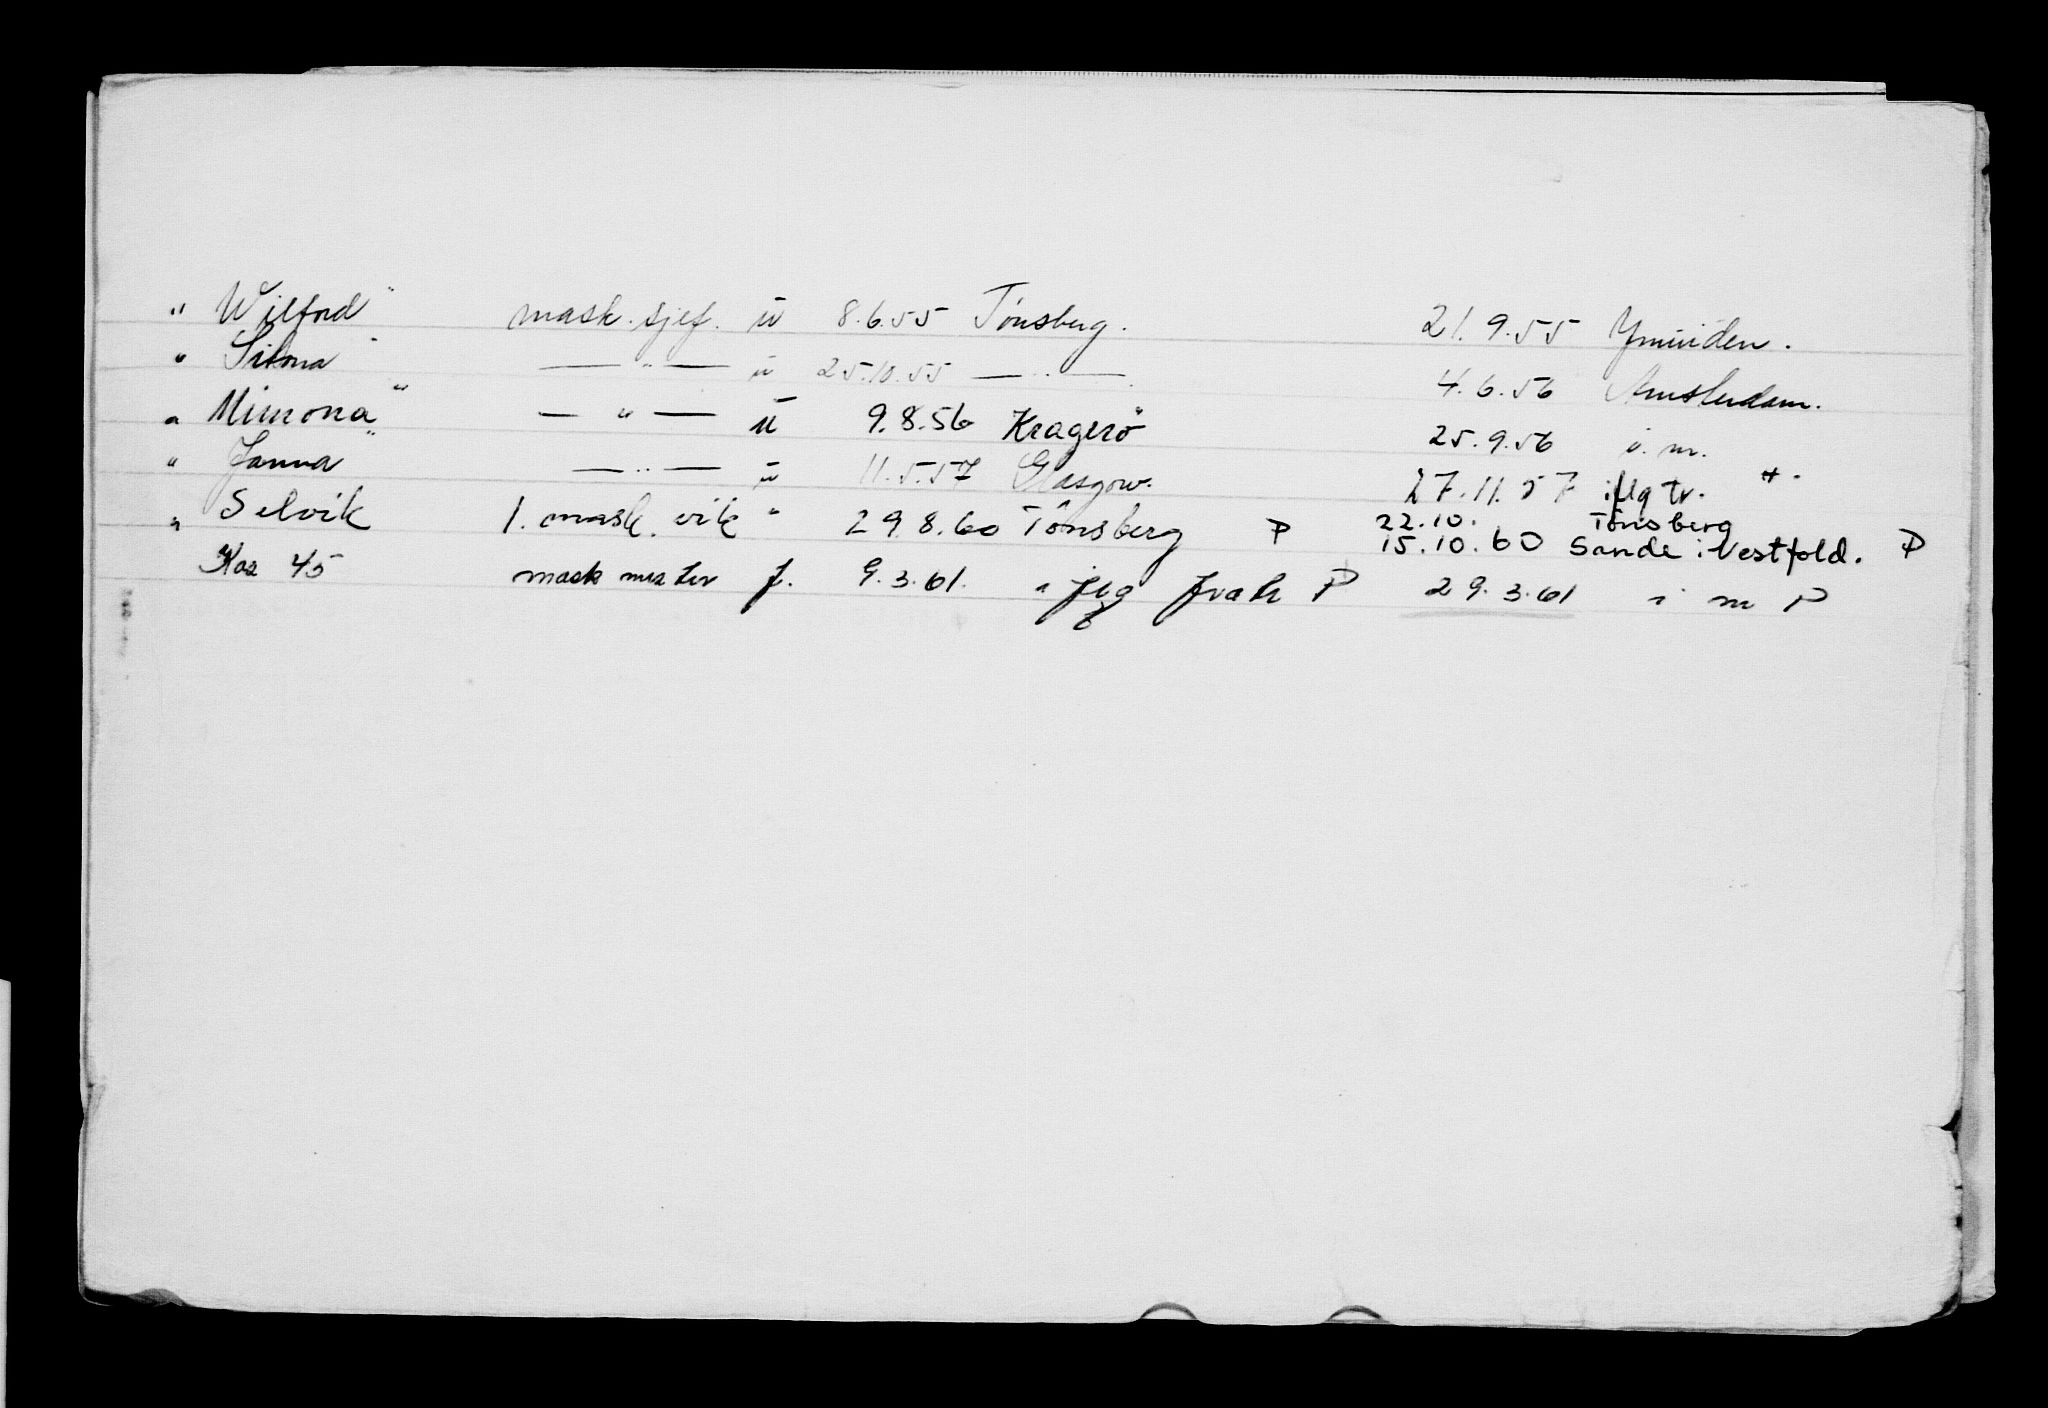 " Wilford" mask. sjef. ū 8.6.55 Tönsberg. 21.9.55 Ymuiden.
" Sitona" — " — ū 25.10.55 — " — 4.6.56 Amsterdam.
" Mimona" — " — ū 9.8.56 Kragerö 25.9.56 i. m.
" Janna" — " — ū 11.5.57 Glasgow. 27.11.57 iflg tr. "
" Selvik 1. mask. vik " 29.8.60 Tönsberg P 22.10. Tönsberg
15.10.60 Sande i Vestfold. P
45 mask mester f. 9.3.61. P 29.3.61 i m P